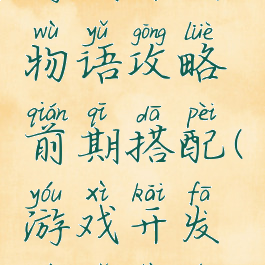 wù yǔ gōng lüè
物语攻略
qián qī dā pèi
前期搭配(
yóu xì kāi fā
游戏开发